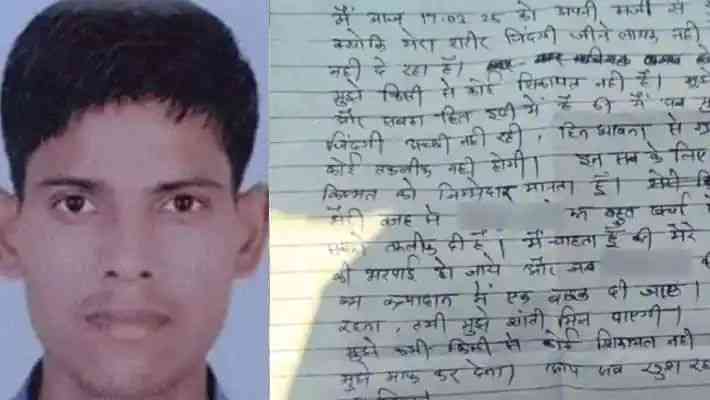 मैं आज 17.02.25 को अपनी मर्जी से
क्योकि मेरा शरीर जिंदगी जीने लायक नही
नही दे रहा है।
मुझे किसी से कोई शिकायत नही है। मुझे
और सबका हित इसी में है की मैं अब
जिंदगी अच्छी नही रही, हिन भावना से
कोई तकलीफ नही होगी। इन सब के लिए
किस्मत को जिम्मेदार मानता हूँ।
मेरी वजह से का बहुत खर्चा
तकलीफ दी है। मैं चाहता हूँ की मेरे
की भरपाई हो जाये और जब
कन्यादान में एक बाइक दी जाए।
रहना, तभी मुझे शांती मिल पाएगी।
मुझे कभी किसी से कोई शिकायत नही
मुझे माफ कर देना। आप सब खुश